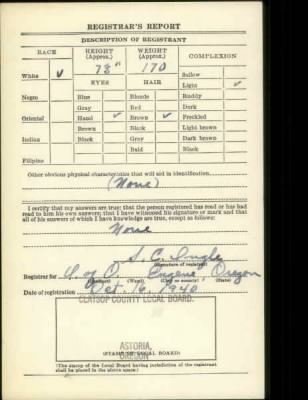 REGISTRAR'S REPORT
DESCRIPTION OF REGISTRANT
RACE HEIGHT (Approx.) WEIGHT (Approx.) COMPLEXION
78" 170
White ✓ EYES HAIR Sallow
Light ✓
Negro Blue Blonde Ruddy
Gray Red Dark
Oriental Hazel ✓ Brown ✓ Freckled
Brown Black Light brown
Indian Black Gray Dark brown
Bald Black
Filipino
Other obvious physical characteristics that will aid in identification
(None)
I certify that my answers are true; that the person registered has read or has had
read to him his own answers; that I have witnessed his signature or mark and that
all of his answers of which I have knowledge are true, except as follows:
None
S. C. Ingle
(Signature of registrar)
Registrar for U. of O. Eugene, Oregon
(Precinct) (Ward) (City or county) (State)
Date of registration Oct. 16, 1940
CLATSOP COUNTY LOCAL BOARD.
ASTORIA,
(STAMP OF LOCAL BOARD)
OREGON
(The stamp of the Local Board having jurisdiction of the registrant
shall be placed in the above space.)